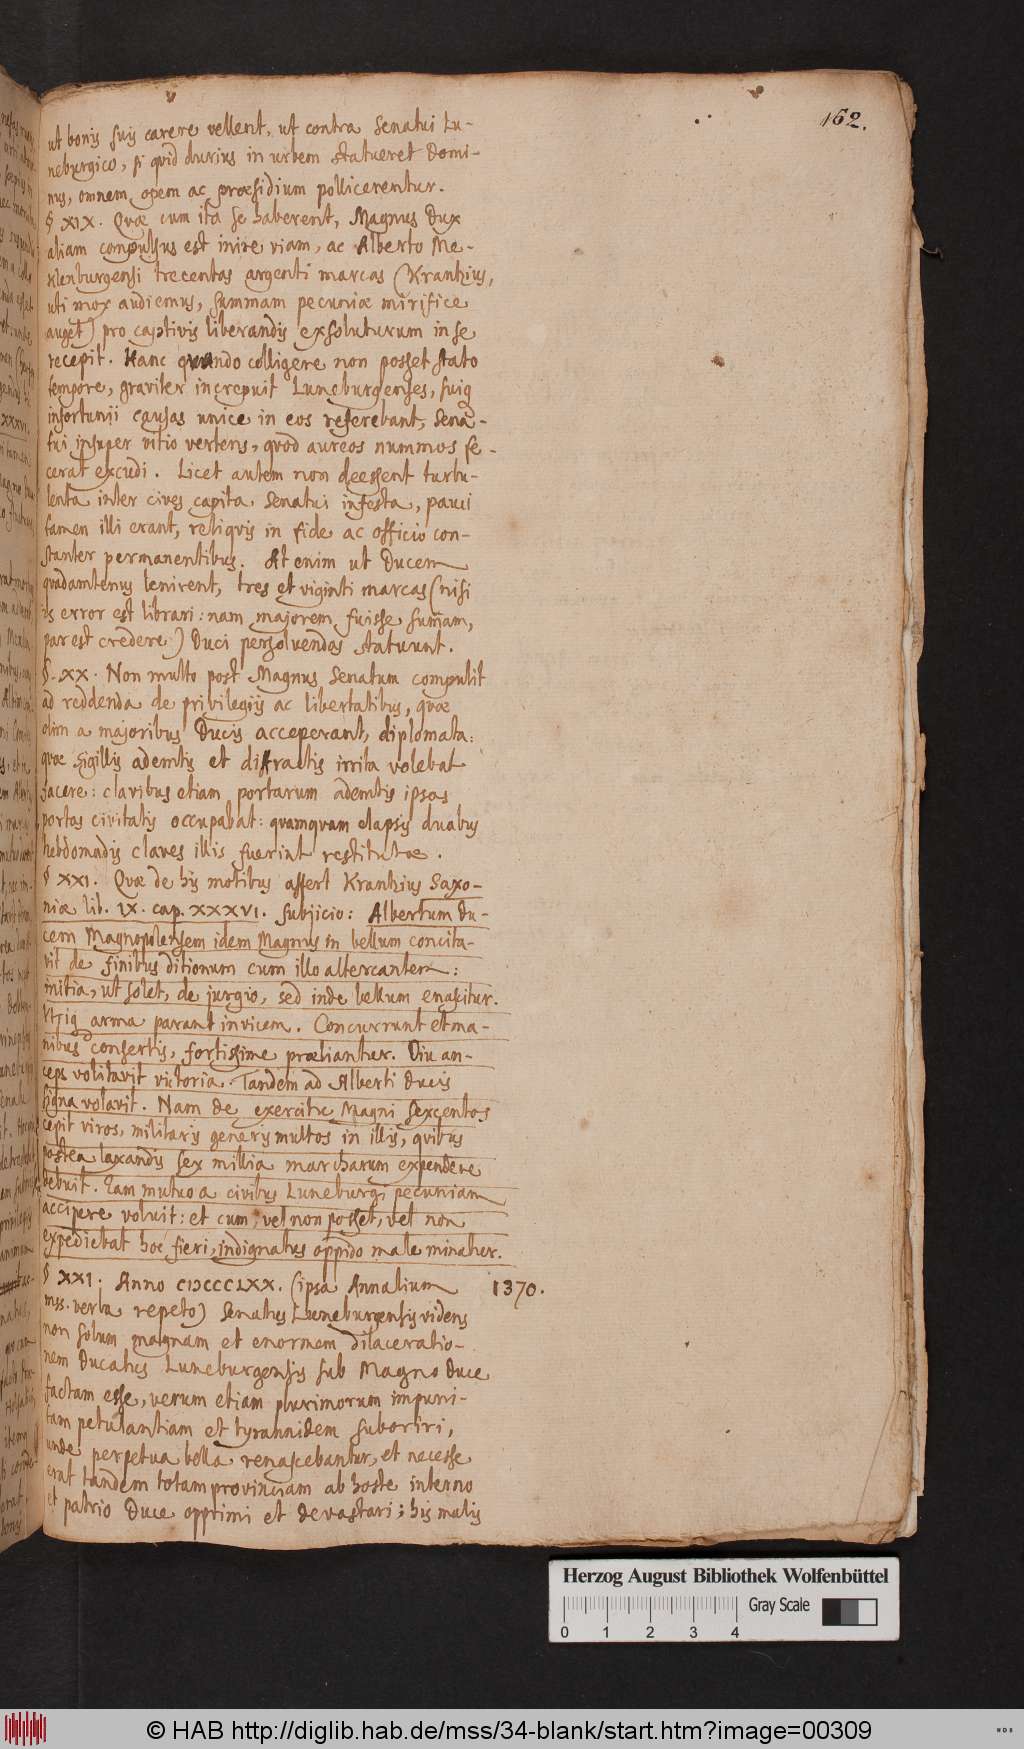 162.
ut bonis suis carere vellent, ut contra Senatui Lu-
neburgico, si quid durius in urbem statueret Domi-
nus, omnem opem ac præsidium pollicerentur.
§ XIX. Quæ cum ita se haberent, Magnus Dux
aliam compulsus est inire viam, ac Alberto Me-
klenburgensi trecentas argenti marcas (Krantzius,
uti mox audiemus, summam pecuniæ mirifice
auget) pro captivis liberandis exsoluturum in se
recepit. Hanc quando colligere non posset stato
tempore, graviter increpuit Luneburgenses, suiq
infortunii causas unice in eos referebant, Sena-
tui insuper vitio vertens, quod aureos nummos fe-
cerat excudi. Licet autem non deessent turbu-
lenta inter cives capita Senatui infesta, pauci
tamen illi erant, reliquis in fide ac officio con-
stanter permanentibus. At enim ut Ducem
quadamtenus lenirent, tres et viginti marcas (nisi
is error est librari: nam majorem fuisse sum̄am,
par est credere) Duci persolvendas statuunt.
§. XX. Non multo post Magnus Senatum compulit
ad reddenda de privilegiis ac libertatibus, quæ
olim a majoribus Ducis acceperant, diplomata:
quæ sigillis ademtis et distractis irrita volebat
facere: clavibus etiam portarum ademtis ipsas
portas civitatis occupabat: quamquam elapsis duabus
hebdomadis claves illis fuerint restitutæ.
§ XXI. Quæ de his motibus affert Krantzius Saxo-
niæ lib. IX. cap. XXXVI. subjicio: Albertum Du-
cem Magnopolensem idem Magnus in bellum concita-
vit de finibus ditionum cum illo altercantem:
initia, ut solet, de jurgio, sed inde bellum enascitur.
Utriq arma parant invicem. Concurrunt et ma-
nibus consertis, fortissime præliantur. Diu an-
ceps volitavit victoria. Tandem ad Alberti Ducis
signa volavit. Nam de exercitu Magni sexcentos
cepit viros, militaris generis multos in illis, quibus
postea laxandis sex millia marcharum expendere
debuit. Eam mutuo a civibus Luneburgi pecuniam
accipere voluit: et cum, vel non posset, vel non
expediebat hoc fieri, indignatus oppido male minatur.
§ XXI. Anno CIƆCCCLXX. (ipsa Annalium 1370.
mss. verba repeto) Senatus Luneburgensis videns
non solum magnam et enormem dilaceratio-
nem Ducatus Luneburgensis sub Magno Duce
factam esse, verum etiam plurimorum impuni-
tam petulantiam et tyrannidem suboriri,
unde perpetua bella renascebantur, et necesse
erat tandem totam provinciam ab hoste interno
et patrio Duce opprimi et devastari; his malis
Herzog August Bibliothek Wolfenbüttel
Gray Scale
0 1 2 3 4
© HAB http://diglib.hab.de/mss/34-blank/start.htm?image=00309